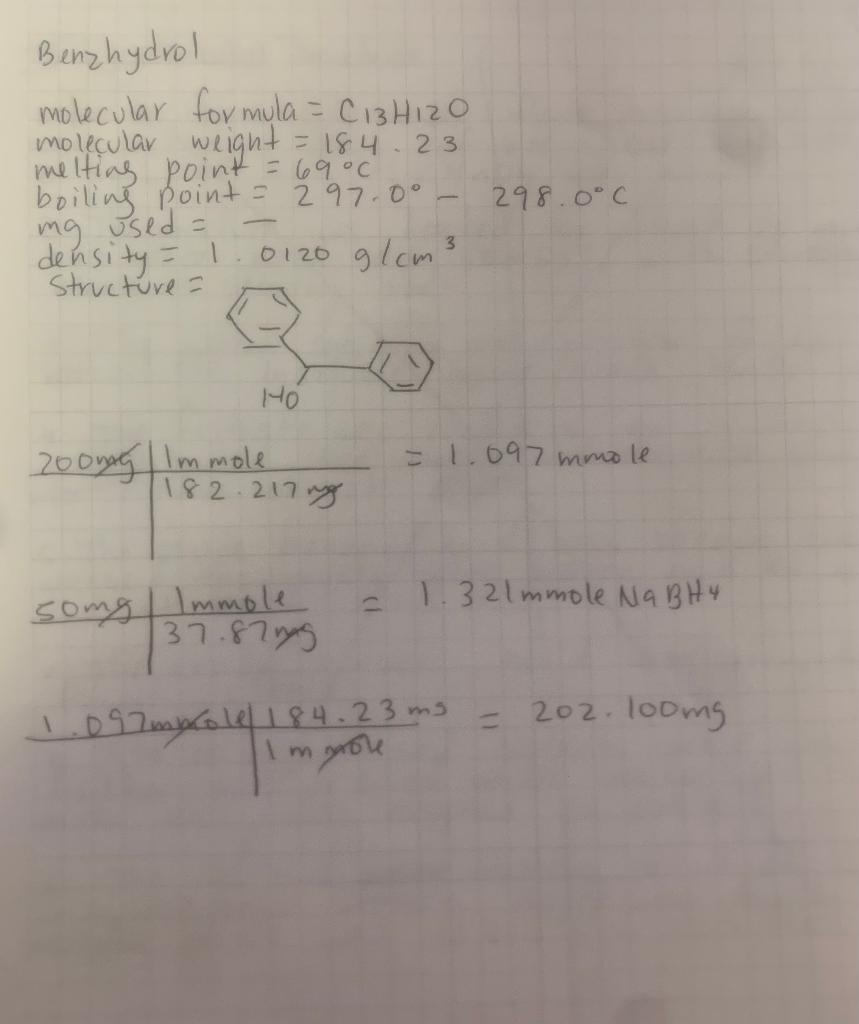 Benzhydrol
molecular formula = C13H12O
molecular weight = 184.23
melting point = 69°C
boiling point = 297.0° - 298.0°C
mg used = —
density = 1.0120 g/cm³
Structure =
HO
200mg | 1mmole = 1.097 mmole
182.217mg
50mg | 1mmole = 1.321mmole NaBH4
37.87mg
1.097mmole | 184.23 mg = 202.100mg
1 mmole